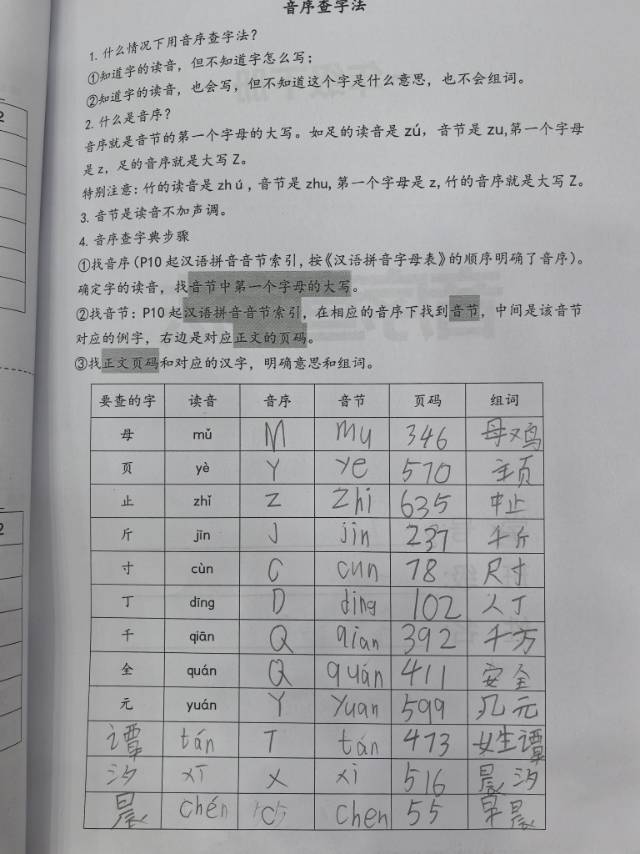 音序查字法
1. 什么情况下用音序查字法？
①知道字的读音，但不知道字怎么写；
②知道字的读音，也会写，但不知道这个字是什么意思，也不会组词。
2. 什么是音序？
音序就是音节的第一个字母的大写。如足的读音是 zú，音节是 zu,第一个字母
是 z，足的音序就是大写 Z。
特别注意：竹的读音是 zhú，音节是 zhu,第一个字母是 z,竹的音序就是大写 Z。
3. 音节是读音不加声调。
4. 音序查字典步骤
①找音序（P10 起汉语拼音音节索引，按《汉语拼音字母表》的顺序明确了音序）。
确定字的读音，找音节中第一个字母的大写。
②找音节：P10 起汉语拼音音节索引，在相应的音序下找到音节，中间是该音节
对应的例字，右边是对应正文的页码。
③找正文页码和对应的汉字，明确意思和组词。
要查的字 读音 音序 音节 页码 组词
母 mǔ M mu 346 母鸡
页 yè Y ye 570 主页
止 zhǐ Z zhi 635 中止
斤 jīn J jin 237 千斤
寸 cùn C cun 78 尺寸
丁 dīng D ding 102 人丁
千 qiān Q qian 392 千万
全 quán Q quán 411 安全
元 yuán Y yuan 599 几元
谭 tán T tán 473 女生谭
汐 xī X xi 516 晨汐
晨 chén C chen 55 早晨
2
2